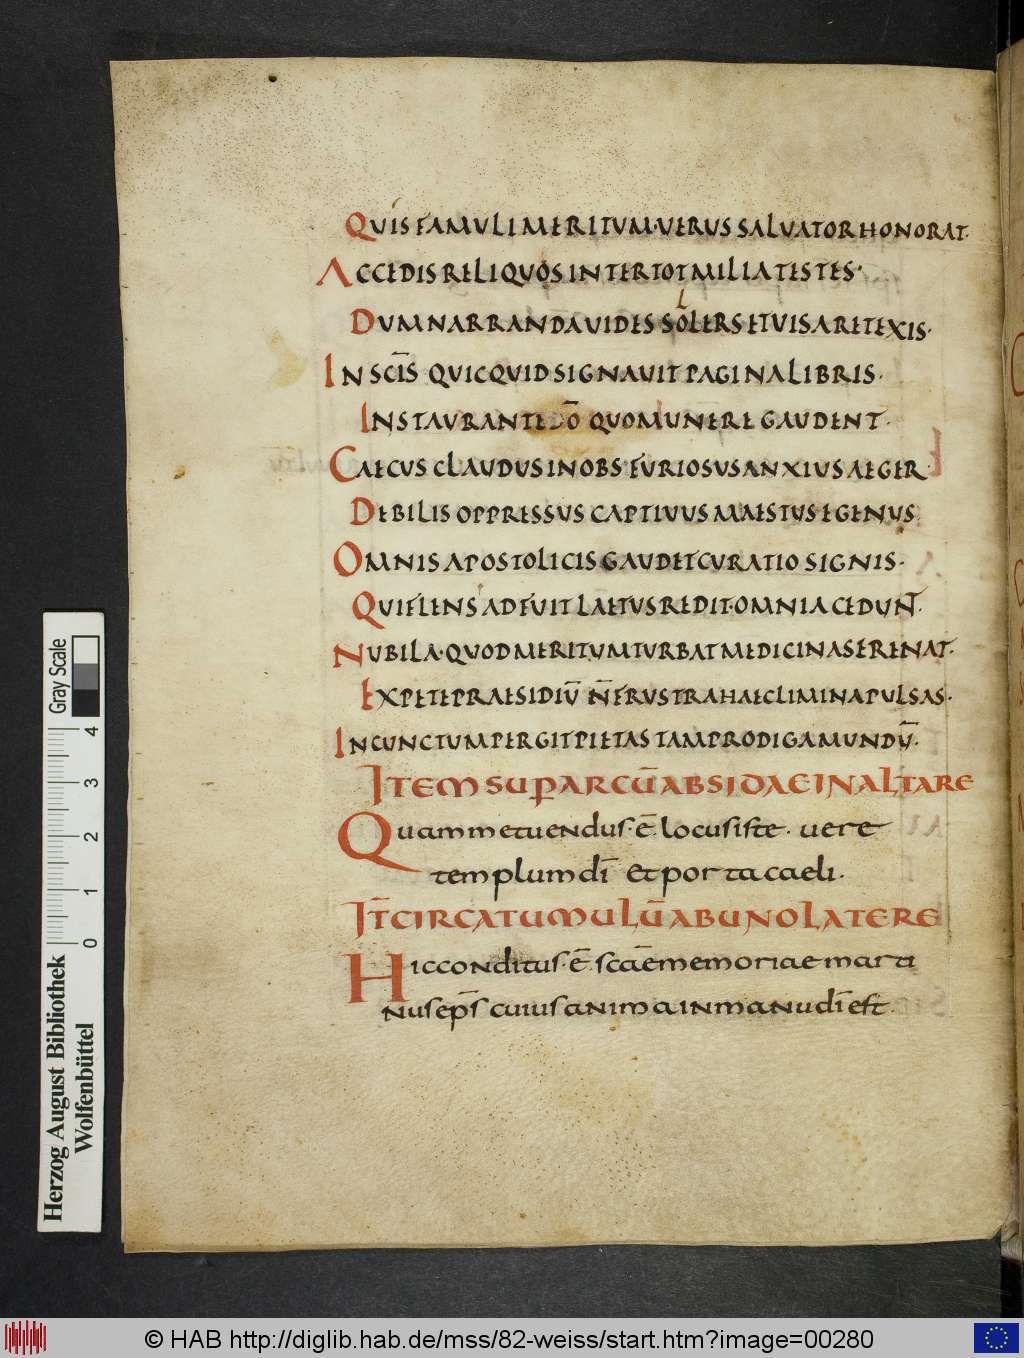 QUIS FAMULI MERITUM·UERUS SALUATOR HONORAT·
ACCEDIS RELIQUOS INTER TOT MILIA TESTES·
DUM NARRANDA UIDES SOLLERS ET UISA RETEXIS·
IN SCĪS QUICQUID SIGNAUIT PAGINA LIBRIS·
INSTAURANTE DŌ QUO MUNERE GAUDENT·
CAECUS CLAUDUS INOBS FURIOSUS ANXIUS AEGER·
DEBILIS OPPRESSUS CAPTIUUS MAESTUS EGENUS
OMNIS APOSTOLICIS GAUDET CURATIO SIGNIS·
QUI FLENS ADFUIT LAETUS REDIT·OMNIA CEDUNT·
NUBILA·QUOD MERITUM TURBAT MEDICINA SERENAT·
EXPETE PRAESIDIŪ N̄ FRUSTRA HAEC LIMINA PULSAS·
IN CUNCTUM PERGIT PIETAS TAM PRODIGA MUNDŪ·
ITEM SUPARCŪ ABSIDAE IN ALTARE
Quam metuendus·ē locus iste· uere
templum dī et porta caeli·
IT̄ CIRCA TUMULŪ AB UNO LATERE
Hic conditus·ē scāe memoriae marti
nus ep̄s cuius anima in manu dī est·
Gray Scale
4
3
2
1
0
Herzog August Bibliothek
Wolfenbüttel
© HAB http://diglib.hab.de/mss/82-weiss/start.htm?image=00280